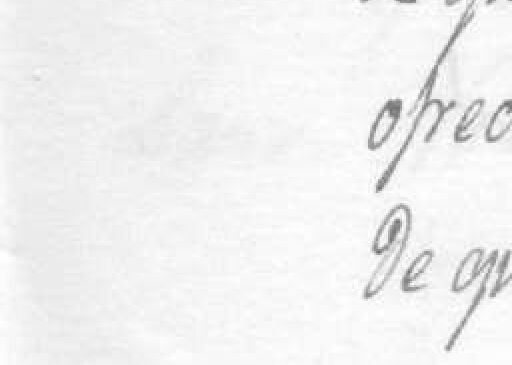 ofrec
De qu